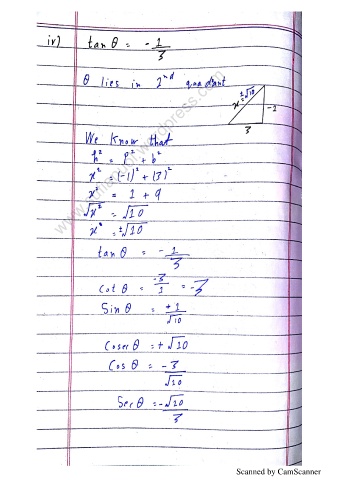 iv) tan θ = -1/3
θ lies in 2nd quadrant
x = ±√10
-1
3
We know that
h² = p² + b²
x² = (-1)² + (3)²
x² = 1 + 9
√x² = √10
x = ±√10
tan θ = -1/3
cot θ = -3/1 = -3
Sin θ = +1/√10
Cosec θ = +√10
Cos θ = -3/√10
Sec θ = -√10/3
Scanned by CamScanner